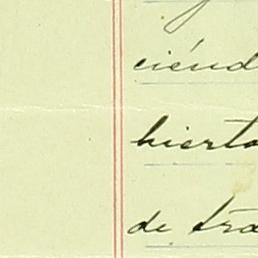 ciénd
hierto
de tra